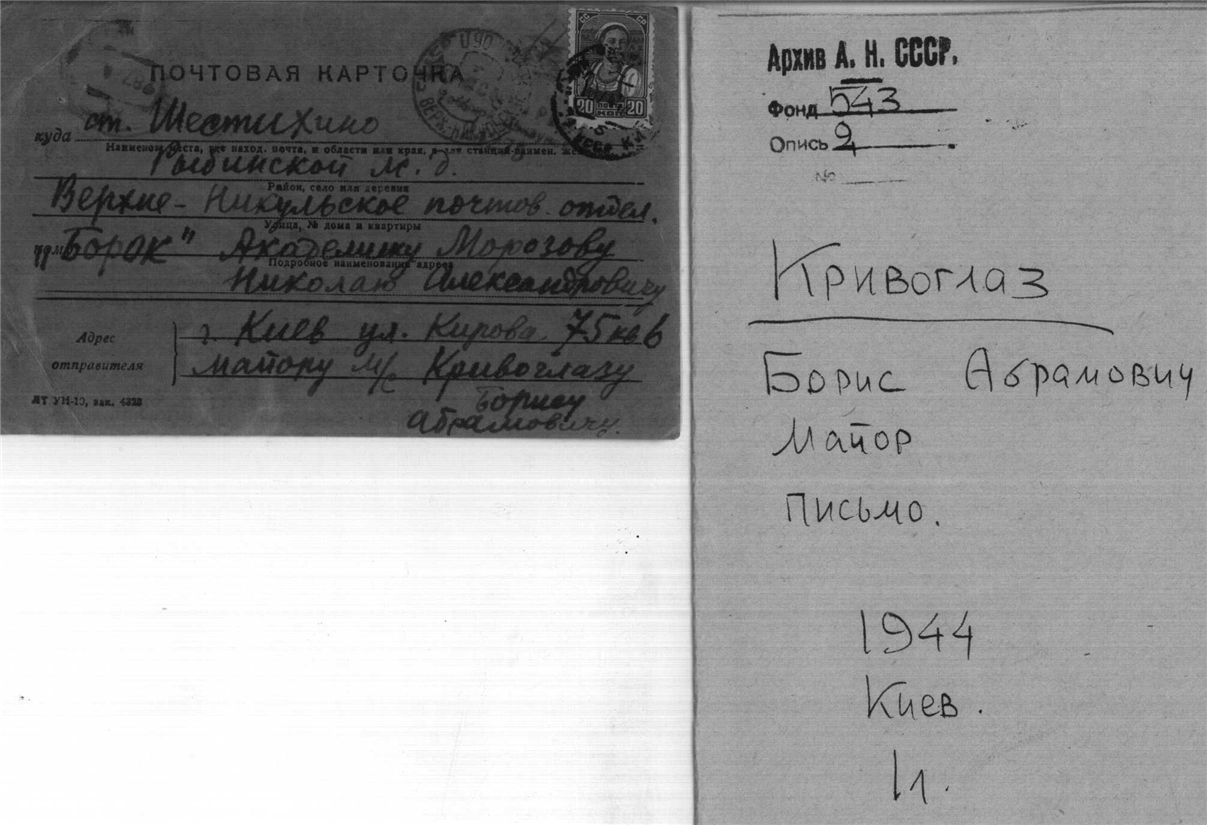 ПОЧТОВАЯ КАРТОЧКА
20 20
коп
куда ст. Шестихино
Рыбинской ж. д.
Район, село или деревня
Верхне-Никульское почтов. отдел.
Улица, № дома и квартиры
"Борок" Академику Морозову
Подробное наименование адреса
Николаю Александровичу
Адрес
отправителя
г. Киев ул. Кирова 75 кв 6
майору м/с Кривоглазу
Борису
Абрамовичу.
ЛТ УН-10, зак. 4328
Архив А. Н. СССР.
Фонд 543
Опись 2
№
Кривоглаз
Борис Абрамович
Майор
Письмо.
1944
Киев.
1л.